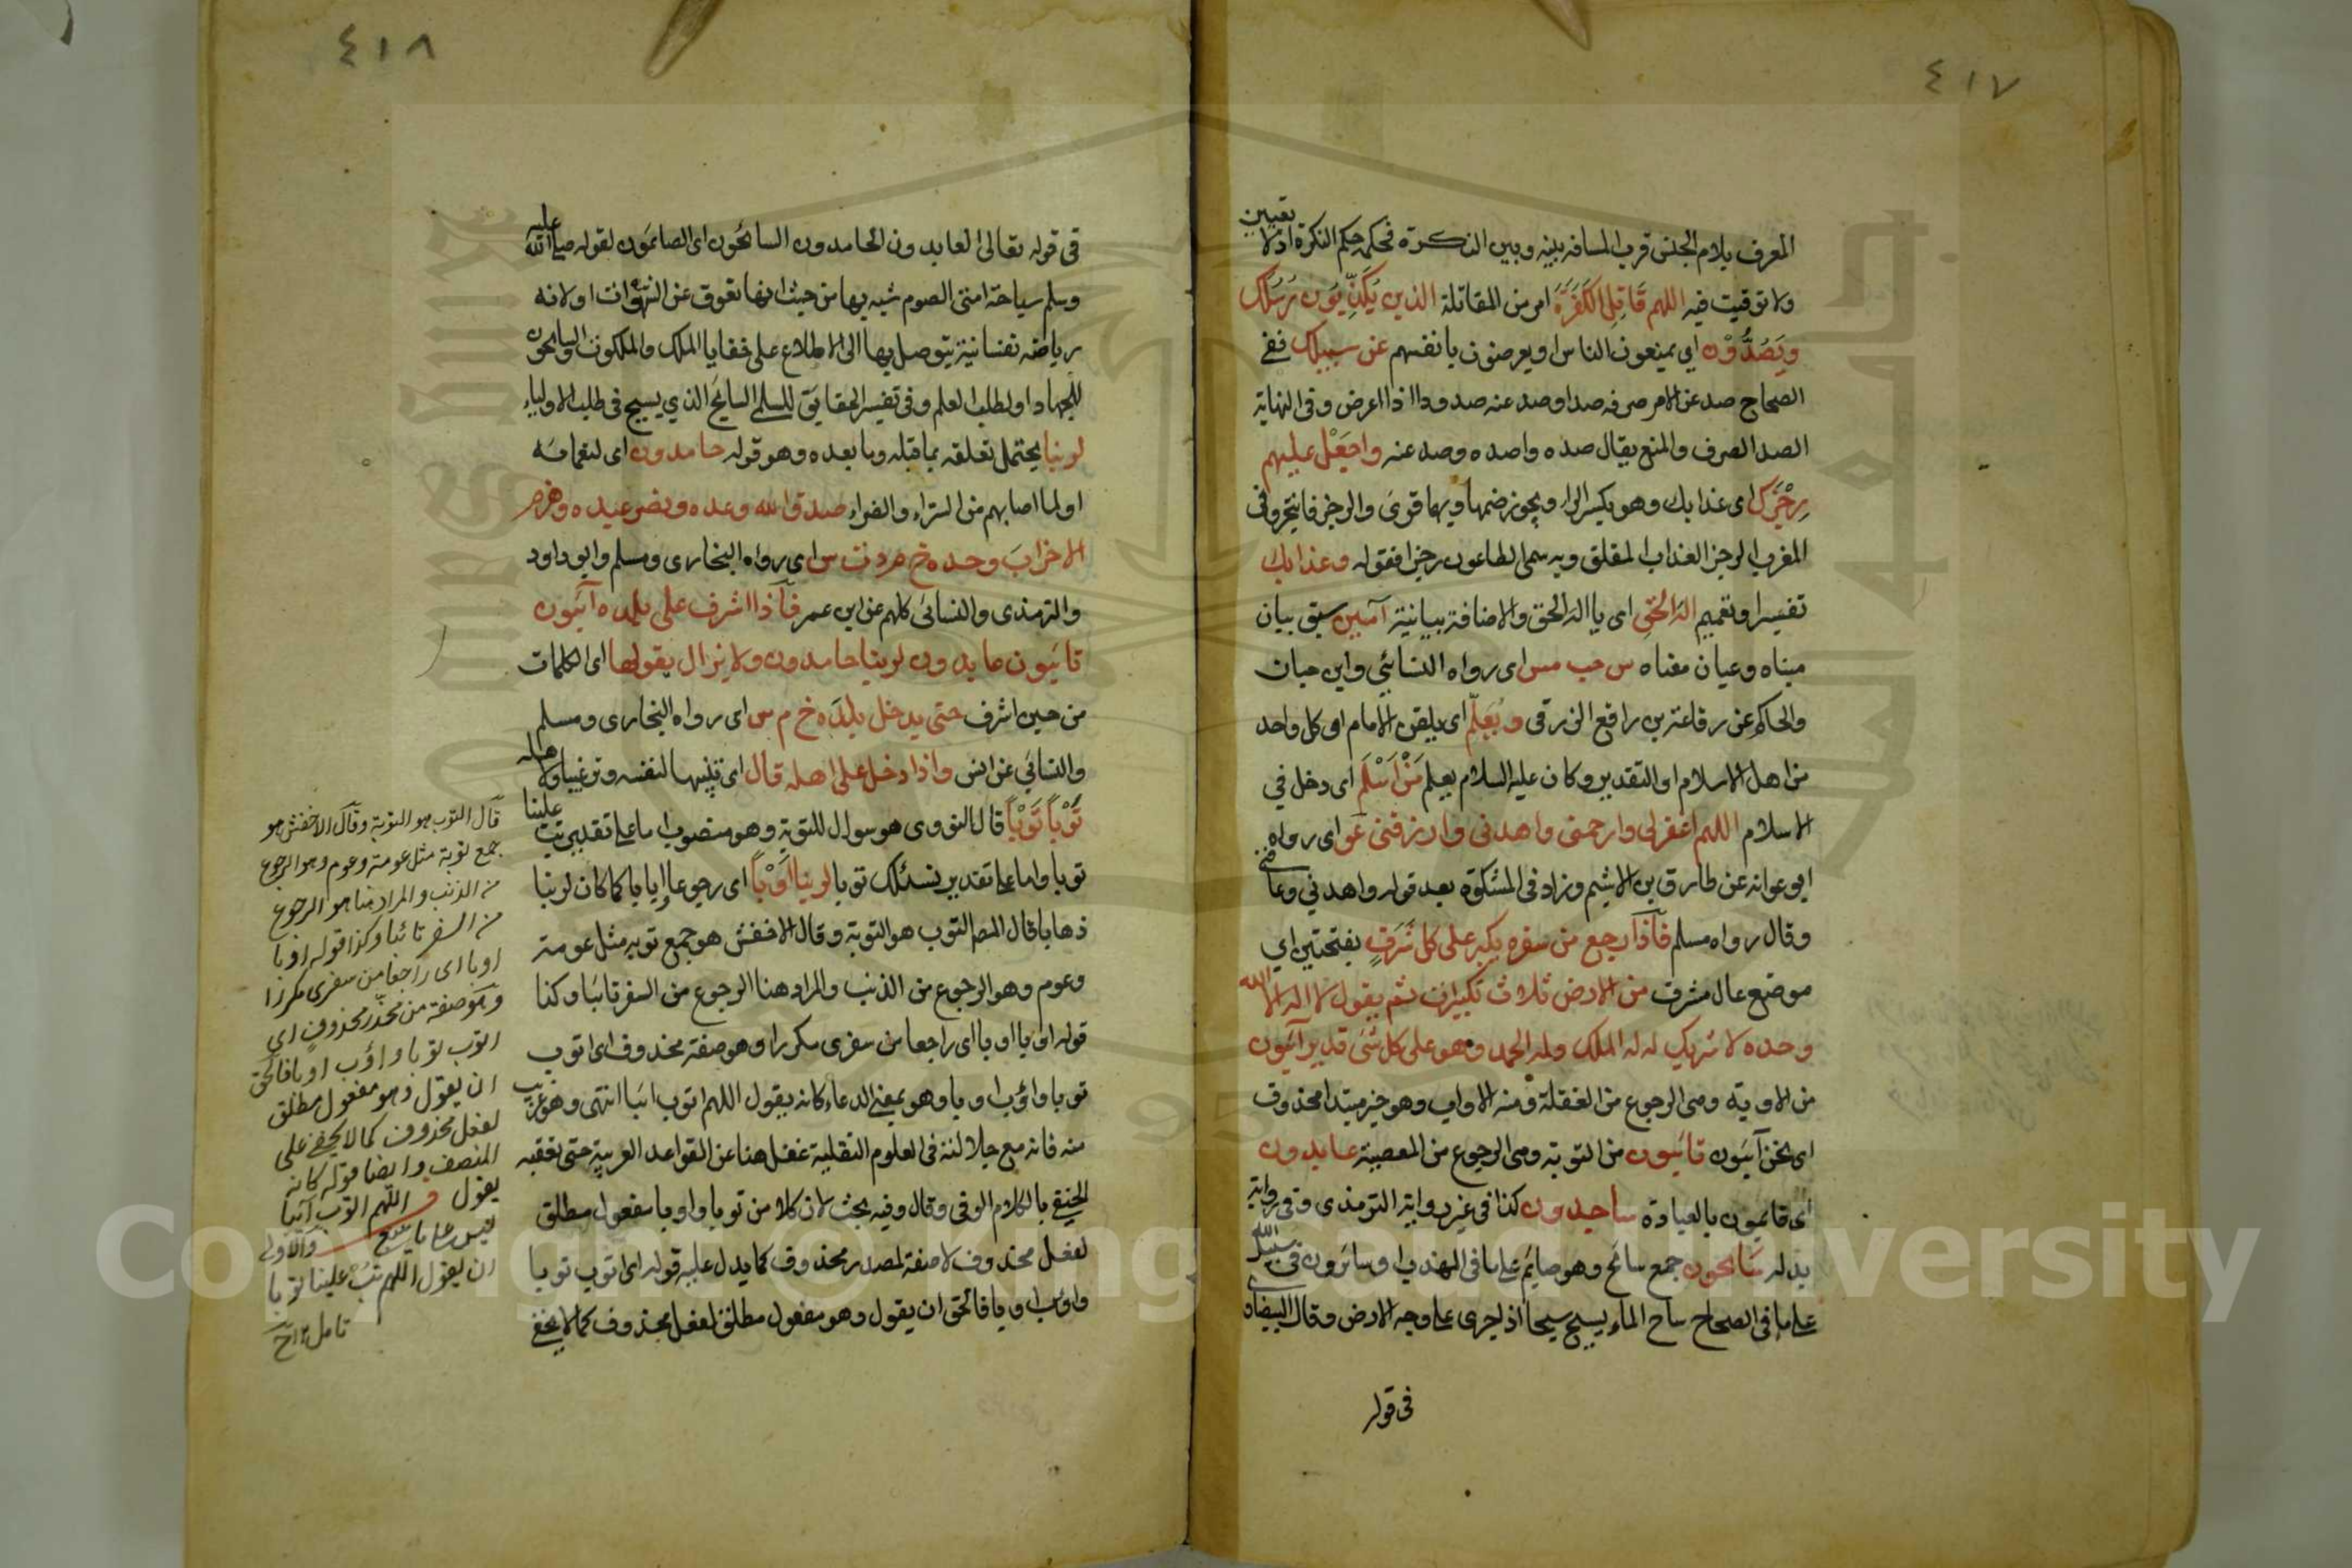 ٤١٧
المعرف بلام الجنس قرب المسافة بينه وبين النكرة فحكمه حكم النكرة اذ لا تعيين
ولا توقيت فيه اللهم قَاتِلِ الكَفَرَةَ امر من المقاتلة الذين يُكَذِّبُون رُسُلك
وَيَصُدُّوْن اي يمنعون الناس او يعرضون بانفسهم عن سبيلك ففي
الصحاح صد عن الامر صرفه صدا وصد عنه صدودا اذا اعرض وفي النهاية
الصد الصرف والمنع يقال صده واصده وصد عنه واجعَلْ عليهم
رِجْزَك اى عذابك وهو بكسر الراء ويجوز ضمها وبهما قوى والرجز فاهجر وفى
المغرب الرجز العذاب المقلق وبه سمى الطاعون رجزا فقوله وعذابك
تفسير او تعميم الهَ الحَقِّ اى يا اله الحق والاضافة بيانية آمين سبق بيان
مبناه وعيان معناه س حب مس اى رواه النسائي وابن حبان
والحاكم عن رفاعة بن رافع الزرقى ويُعَلِّم اى يلقن الامام او كل واحد
من اهل الاسلام او التقدير وكان عليه السلام يعلم مَنْ اَسْلَم اى دخل في
الاسلام اللهم اغفر لى وارحمنى واهدنى وارزقنى عَو اى رواه
ابو عوانة عن طارق بن الاشيم وزاد فى المشكوة بعد قوله واهدني وعافني
وقال رواه مسلم فَاذَا رجع من سفره يكبر على كل شَرَفٍ بفتحتين اي
موضع عال مشرف من الارض ثلاث تكبيرات ثم يقول لا اله الا الله
وحده لا شريك له له الملك وله الحمد وهو على كل شئ قدير آئبون
من الاوبة وهى الرجوع من الغفلة ومنه الاواب وهو خبر مبتدا محذوف
اى نحن آئبون تائبون من التوبة وهى الرجوع من المعصية عابدون
اى قائمون بالعبادة ساجدون كذا فى غير رواية الترمذى وفى رواية
بدله سَائحون جمع سائح وهو صايم على ما فى المهذب او سائرون فى سبيل الله
على ما فى الصحاح ساح الماء يسيح سيحا اذا جرى على وجه الارض وقال البيضاوي
فى قوله
٤١٨
فى قوله تعالى العابدون الحامدون السائحون اى الصائمون لقوله صلى الله عليه
وسلم سياحة امتى الصوم شبه بها من حيث انها تعوق عن الشهوات او لانه
رياضة نفسانية يتوصل بها الى الاطلاع على خفايا الملك والملكوت او السائحون
للجهاد او لطلب العلم وفى تفسير الحقايق للسلمى السايح الذي يسيح فى طلب الاولياء
لربنا يحتمل تعلقه بما قبله وما بعده وهو قوله حامدون اى لنعمائه
او لما اصابهم من السراء والضراء صدق الله وعده ونصر عبده وهزم
الاحزابَ وحده خ م د ت س اى رواه البخارى ومسلم وابو داود
والترمذى والنسائى كلهم عن ابن عمر فَاذا اشرف على بلده آئبون
تائبون عابدون لربنا حامدون ولا يزال يقولها اى الكلمات
من حين اشرف حتى يدخل بلدَه خ م س اى رواه البخارى ومسلم
والنسائي عن انس واذا دخل على اهله قال اى تنبيها لنفسه وترغيبا لاهله
تَوْباً تَوْباً قال النووى هو سوال للتوبة وهو منصوب اما على تقدير تب علينا
توبا واما على تقدير نسئلك توبا لربنا اَوْباً اى رجوعا إيابا كما كان لربنا
ذهابا قال المصر التوب هو التوبة وقال الاخفش هو جمع توبه مثل عومة
وعوم وهو الرجوع من الذنب والمراد هنا الرجوع من السفر تائبا وكذا
قوله اوبا اوبا اى راجعا من سفرى مكررا وهو صفة محذوف اى اتوب
توبا واؤب اوبا وهو بمعنى الدعاء كانه يقول اللهم اتوب ائبا انتهى وهو غريب
منه فانه مع جلالته فى العلوم النقلية غفل هنا عن القواعد العربية حتى تعقبه
الحنفى بالكلام الوفى وقال وفيه بحث لان كلا من توبا واوبا مفعول مطلق
لفعل محذوف لا صفة لمصدر محذوف كما يدل عليه قوله اى اتوب توبا
واؤب اوبا فالحق ان يقول وهو مفعول مطلق لفعل محذوف كما لا يخفى
قال التوب هو التوبة وقال الاخفش هو
جمع توبة مثل عومة وعوم وهو الرجوع
من الذنب والمراد هنا هو الرجوع
من السفر تائبا وكذا قوله اوبا
اوبا اى راجعا من سفرى مكررا
وهو صفة من محذوف اى
اتوب توبا واؤب اوبا فالحق
ان يقول وهو مفعول مطلق
لفعل محذوف كما لا يخفى على
المنصف وايضا قوله كانه
يقول اللهم اتوب آئبا
ليس على ما ينبغي والاولى
ان يقول اللهم تب علينا توبا
تامل
Copyright © King Saud University